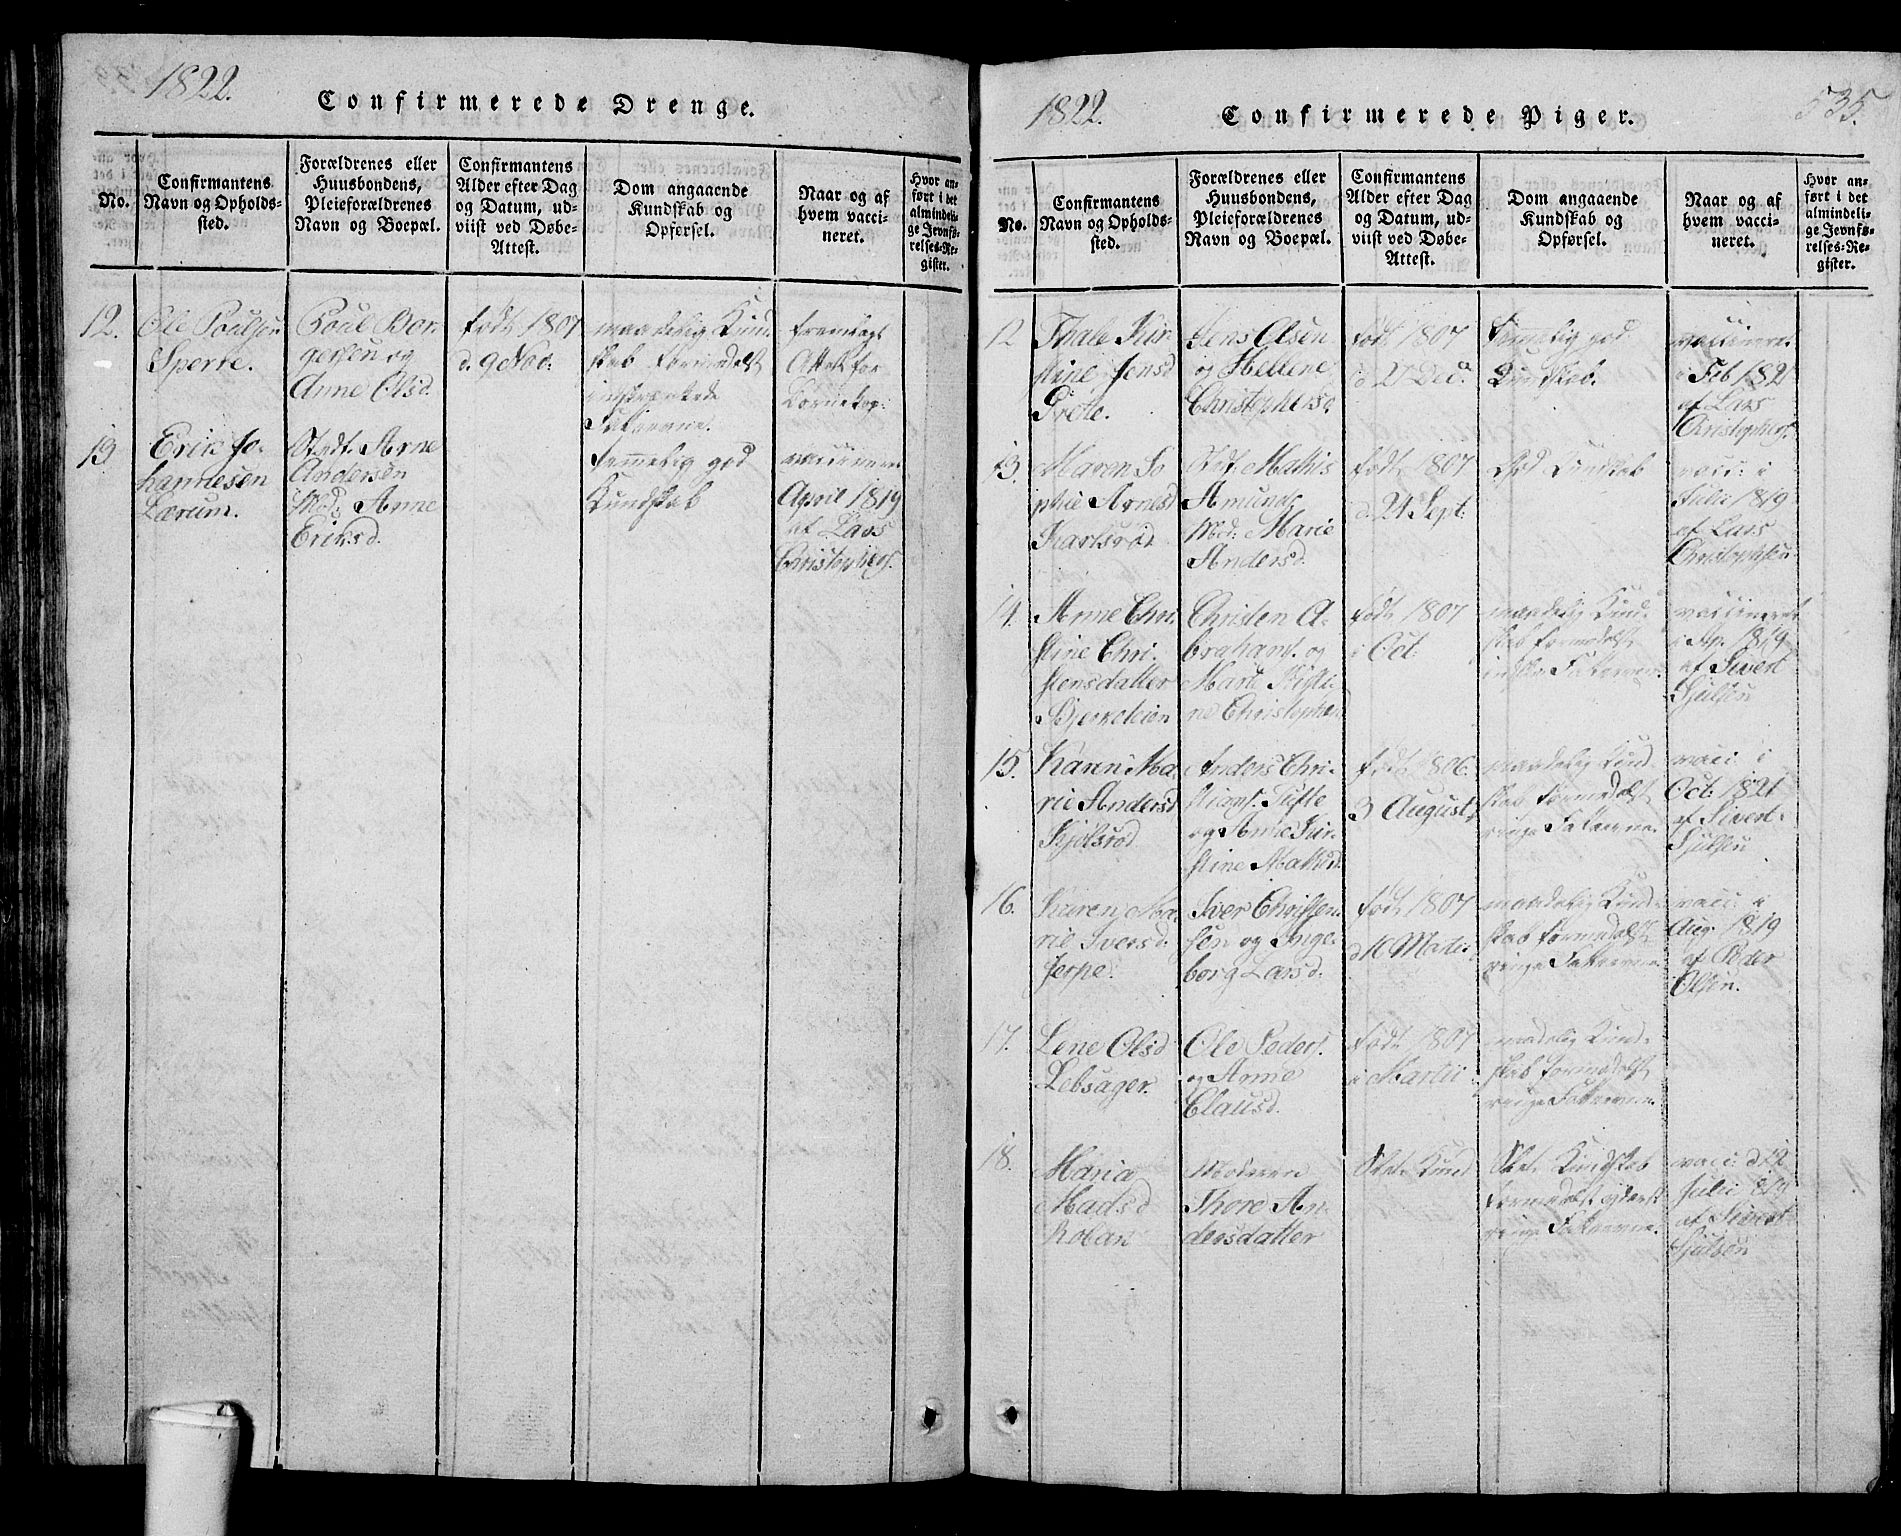 1822.
Confirmerede Drenge.
No.
Confirmantens
Navn og Opholds-
sted.
Forældrenes eller
Huusbondens,
Pleieforældrenes
Navn og Boepæl.
Confirmantens
Alder efter Dag
og Datum, ud-
viist ved Døbe-
Attest.
Dom angaaende
Kundskab og
Opførsel.
Naar og af
hvem vacci-
neret.
Hvor an-
ført i det
almindeli-
ge Jevnfø-
relses-Re-
gister.
12.
Ole Poulsen
Sperre.
Poul Bor-
gersen og
Anne Olsd.
født 1807
d. 9 Nov:
maadelig Kund-
skab formedelst
indskrænkede
fremlagt
Attest for
13
Erik Jo-
hannesen
Lærum.
Stedf. Arne
Andersen
Mod: Anne
Eriksd.
temmelig god
Kundskab
vaccineret
April 1819
af Lars
Christophers.
1822.
Confirmerede Piger.
535.
No.
Confirmantens
Navn og Opholds-
sted.
Forældrenes eller
Huusbondens,
Pleieforældrenes
Navn og Boepæl.
Confirmantens
Alder efter Dag
og Datum, ud-
viist ved Døbe-
Attest.
Dom angaaende
Kundskab og
Opførsel.
Naar og af
hvem vacci-
neret.
Hvor an-
ført i det
almindeli-
ge Jevnfø-
relses-Re-
gister.
12
Thale Kir-
stine Jensd
Jens Olsen
og Hellene
Christophersd
født 1807
d 21 Dec.
temmelig god
Kundskab.
vaccineret
i Feb 1821
af Lars
Christophers.
13.
Maren So
phie Arnesd
Karlsrød
Stedf. Mathis
Amunds
Mod: Marie
Andersd.
født 1807
d. 24 Sept:
God Kundskab
vacc: i
Juli 1819
af Lars
Christophersen
14.
Anne Chri-
stine Chri-
stensdatter
Christen A-
brahams. og
Marie Kirsti-
ne Christophersd.
født 1807
i Oct:
maadelig Kund-
skab formedelst
vaccineret
i Ap. 1819
af Sivert
Sjulsen
15.
Karen Ma-
rie Andersd
Kjølsrød
Anders Chri-
stians. Tufte
og Anne Kir-
stine Mathisd.
født 1806.
3 August
maadelig Kund-
skab formedelst
ringe Fatteevne.
vacc: i
Oct: 1821
af Sivert
Sjulsen
16.
Karen Ma-
rie Iversd.
Jerpe.
Iver Christen-
sen og Inge-
borg Larsd.
født 1807
d 16 Martii
maadelig Kund-
skab formedelst
ringe Fatteevne.
vacc: i
Aug: 1819
af Peder
Olsen.
17.
Lene Olsd
Lebsager.
Ole Peders.
og Anne
Clausd.
født 1807
i Martii
maadelig Kund-
skab formedelst
ringe Fatteevne.
18.
Maria
Madsd
Moderen
Thore An-
dersdatter
Slet Kund
Slet Kundskab
formedelst yderst
ringe Fatteevne.
vacc: d 12
Julii 1819
af Sivert
Sjulsen